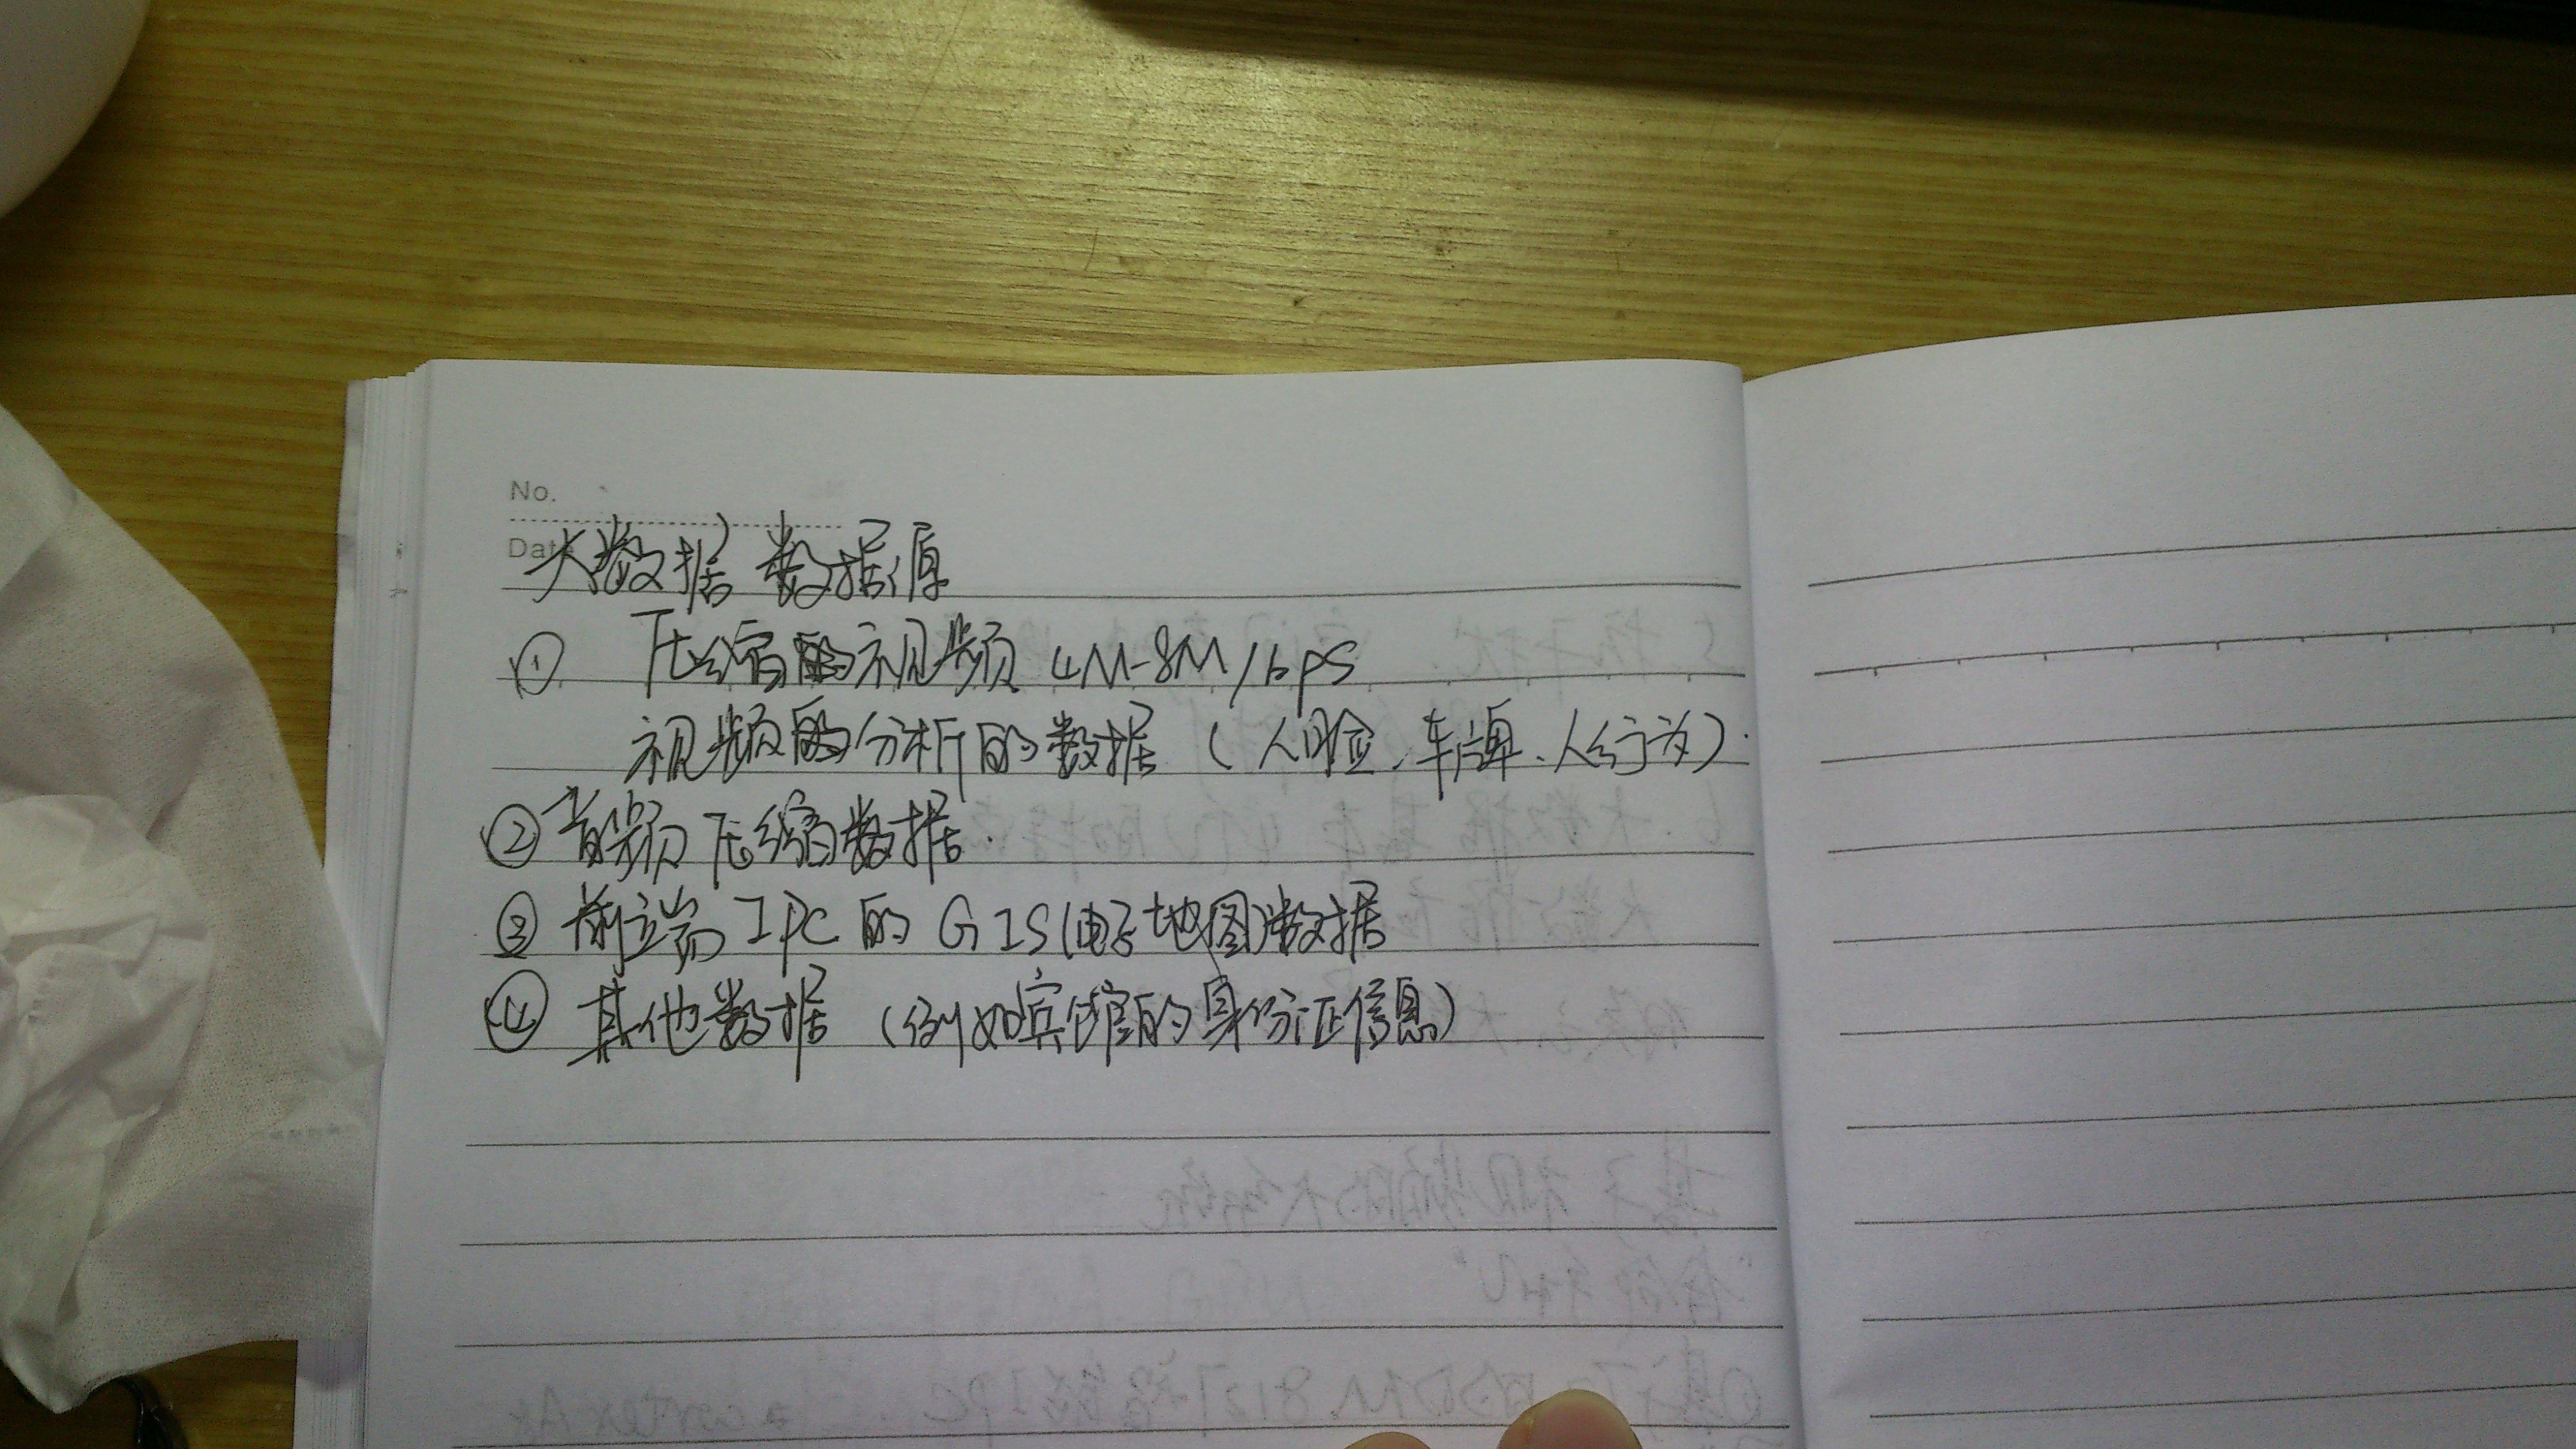 No.
Date
大数据 数据源
① 压缩的视频 4M-8M/bps
视频的分析的数据（人脸、车牌、人行为）.
② 音频压缩数据.
③ 前端 IPC 的 GIS(电子地图)数据
④ 其他数据（例如宾馆的身份证信息）